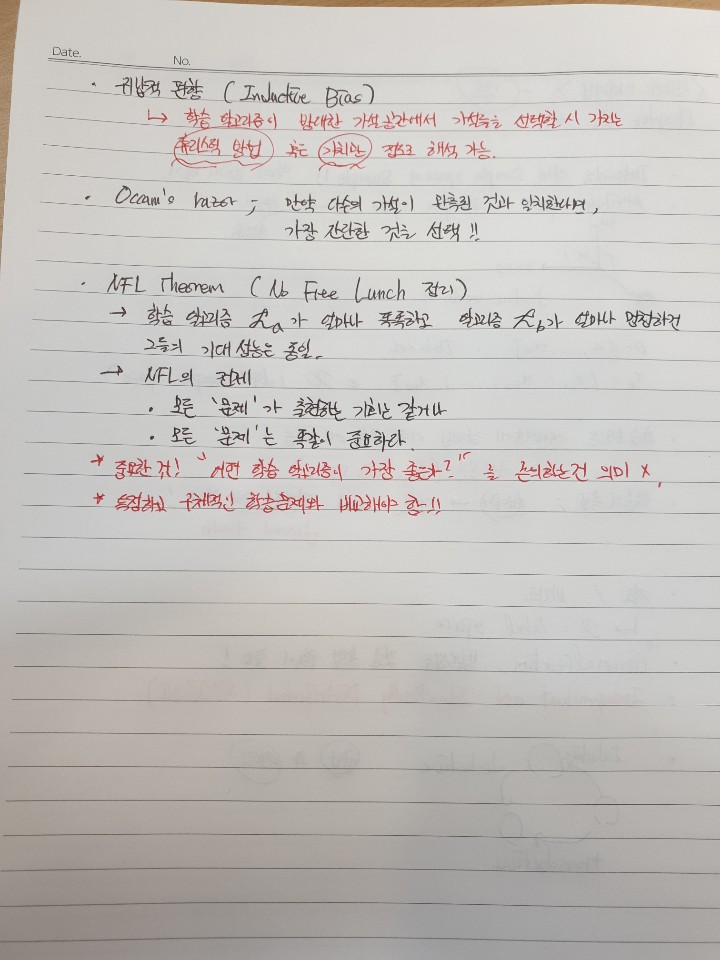 Date.
No.
· 귀납적 편향 ( Inductive Bias)
↳ 학습 알고리즘이 방대한 가설공간에서 가설들을 선택할 시 가지는
휴리스틱 방법 또는 가치판 점으로 해석 가능.
· Occam's razor ; 만약 다수의 가설이 관측된 것과 일치한다면,
가장 간단한 것을 선택!!
· NFL Theorem ( No Free Lunch 정리)
→ 학습 알고리즘 ℒa가 얼마나 똑똑하고 알고리즘 ℒb가 얼마나 멍청하건
그들의 기대성능은 동일.
→ NFL의 전제
· 모든 '문제'가 출현하는 기회는 같거나
· 모든 '문제'는 똑같이 중요하다.
* 중요한 것! "어떤 학습 알고리즘이 가장 좋은가?" 를 논의하는건 의미 x.
* 특정하고 구체적인 학습문제와 비교해야 함!!